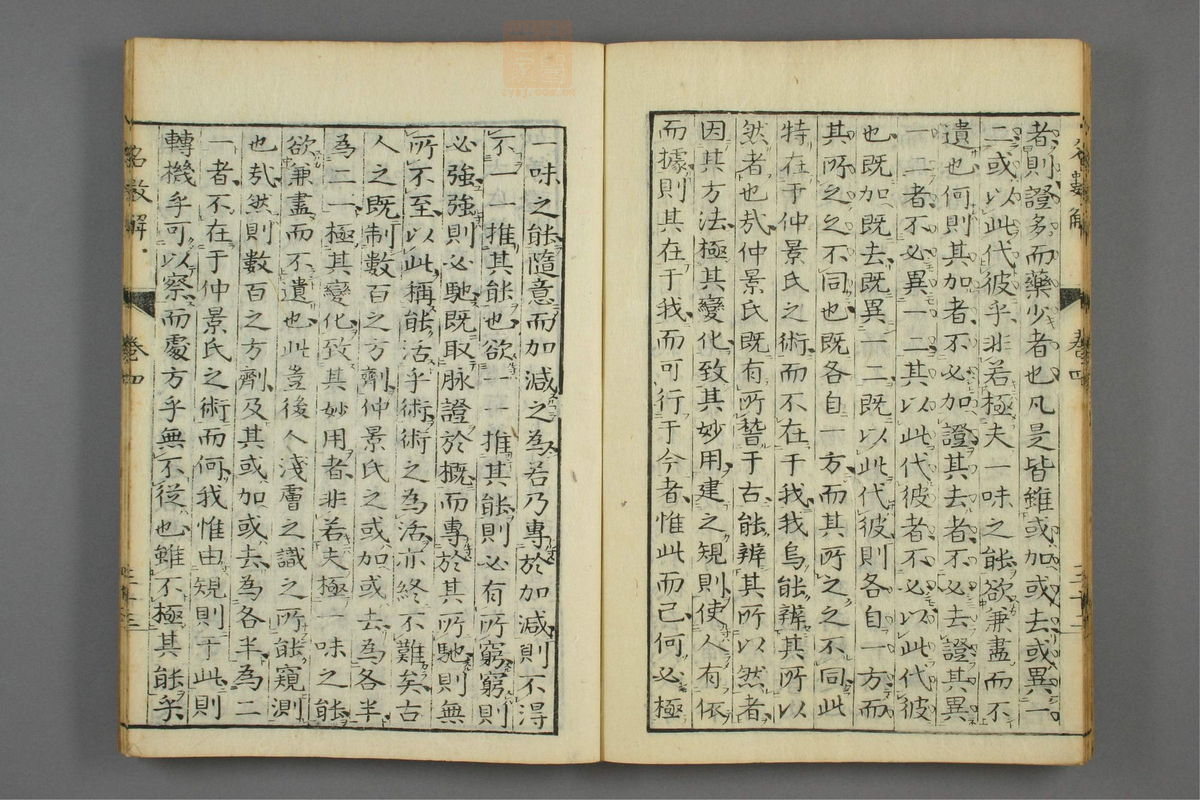 者則證多而藥少者也凡是皆雖或加或去或異一
二或以此代彼乎非若極夫一味之能欲兼盡而不
遺也何則其加者不必加證其去者不必去證其異
一二者不必異一二其以此代彼者不必以此代彼
也既加既去既異一二既以此代彼則各自一方而
其所之之不同也既各自一方而其所之之不同此
特在于仲景氏之術而不在于我我烏能辨其所以
然者也哉仲景氏既有所誓于古能辨其所以然者
因其方法極其變化致其妙用建之規則使人有依
而據則其在于我而可行于今者惟此而已何必極
一味之能隨意而加減之為若乃專於加減則不得
不一一推其能也欲一一推其能則必有所窮窮則
必強強則必馳既取脉證於概而專於其所馳則無
所不至以此稱能活乎術術之為活亦終不難矣古
人之既制數百之方劑仲景氏之或加或去為各半
為二一極其變化致其妙用者非若夫極一味之能
欲兼盡而不遺也此豈後人淺膚之識之所能窺測
也哉然則數百之方劑及其或加或去為各半為二
一者不在于仲景氏之術而何我惟由規則于此則
轉機乎可以察而處方乎無不從也雖不極其能乎
名數解
卷四